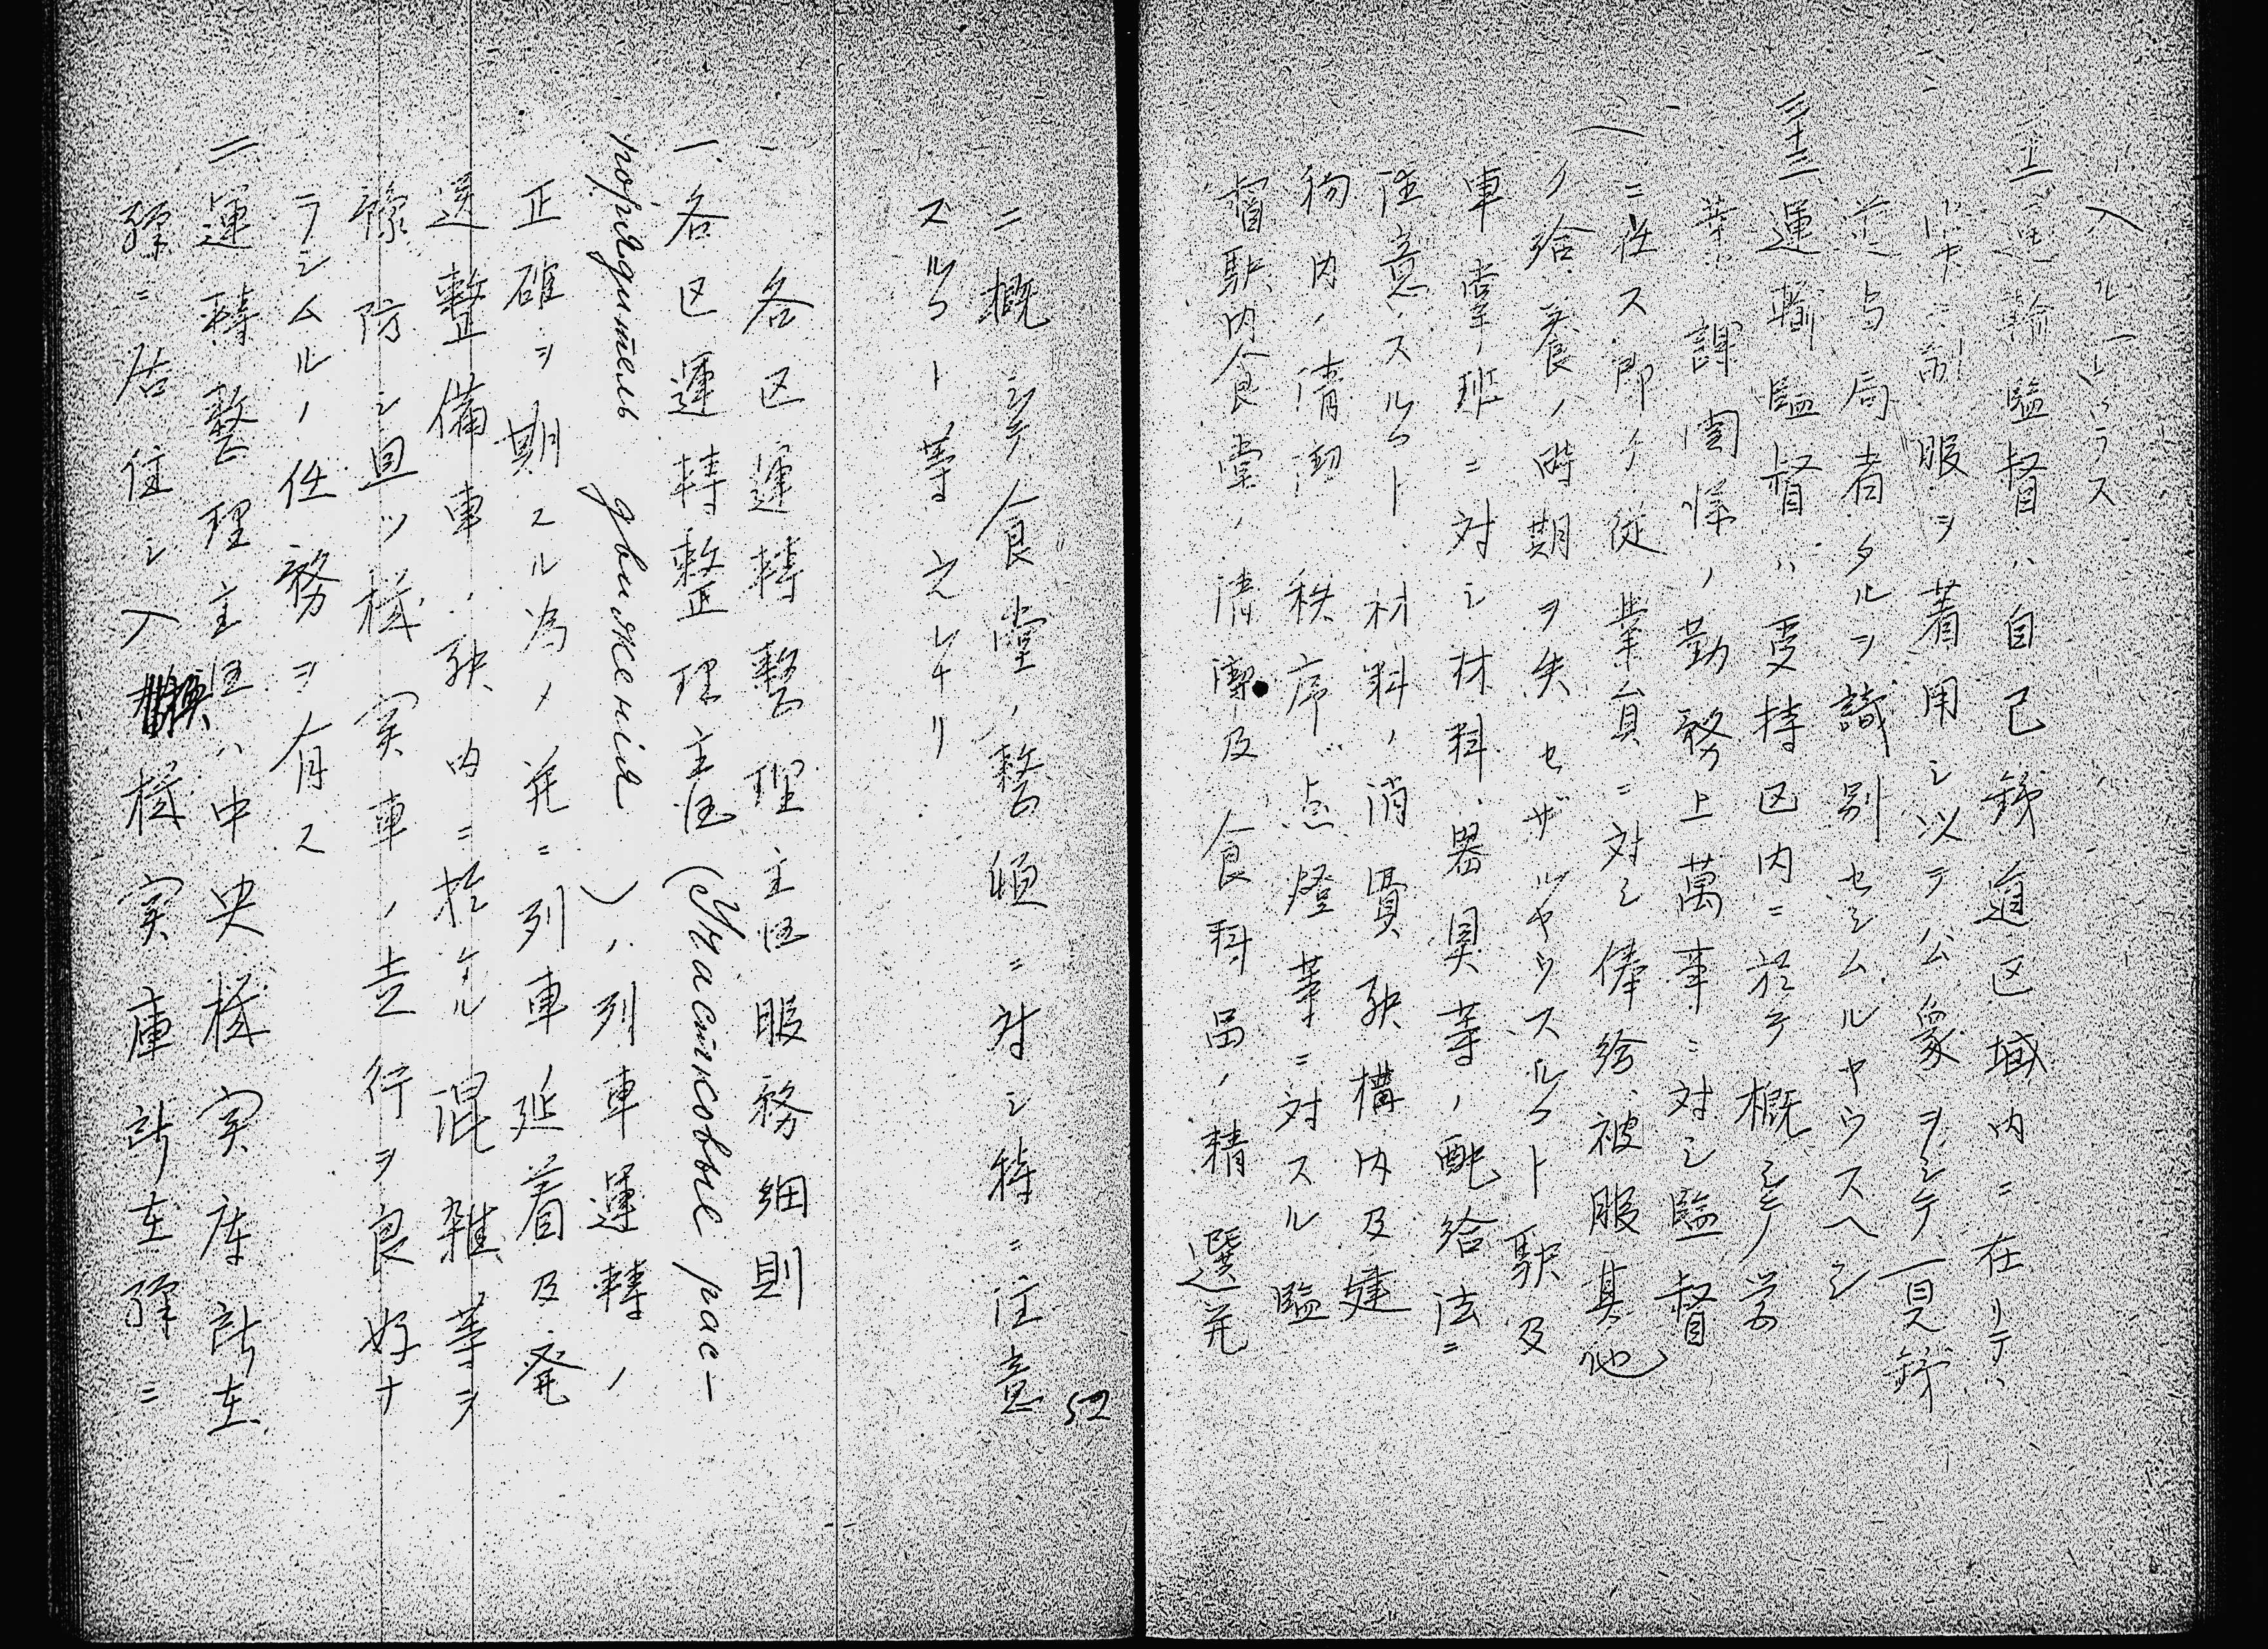 運輸監督ハ自己鉄道区域内ニ在リテハ
常ニ制服ヲ着用シ以テ公衆ヲシテ一見鉄
道当局者タルヲ識別セシムルヤウスヘシ
三十三 運輸監督ハ受持区内ニ於テ概シテ営
業課関係ノ勤務上萬事ニ対シ監督
ニ任ス即チ従業員ニ対シ俸給被服其他
ノ給養ノ時期ヲ失セザルヤウスルヿト駅及
車掌班ニ対シ材料器具等ノ配給法ニ
注意スルヿト材料ノ消費駅構内及建
物内ノ清潔秩序点燈等ニ対スル監
督駅内食堂ノ清潔及食料品ノ精選並
ニ概シテ食堂ノ整頓ニ対シ特ニ注意
スルヿト等之レナリ
52
各区運転整理主任服務細則
一、各区運転整理主任(Участковые рас-
порядитель движенія)ハ列車運転ノ
正確ヲ期スル為メ並ニ列車延着及発
送整備車ノ駅内ニ於ケル混雑等ヲ
予防シ且ツ機関車ノ走行ヲ良好ナ
ラシムルノ任務ヲ有ス
二 運転整理主任ハ中央機関庫所在
駅ニ居住シ入換機関庫所在駅ニ